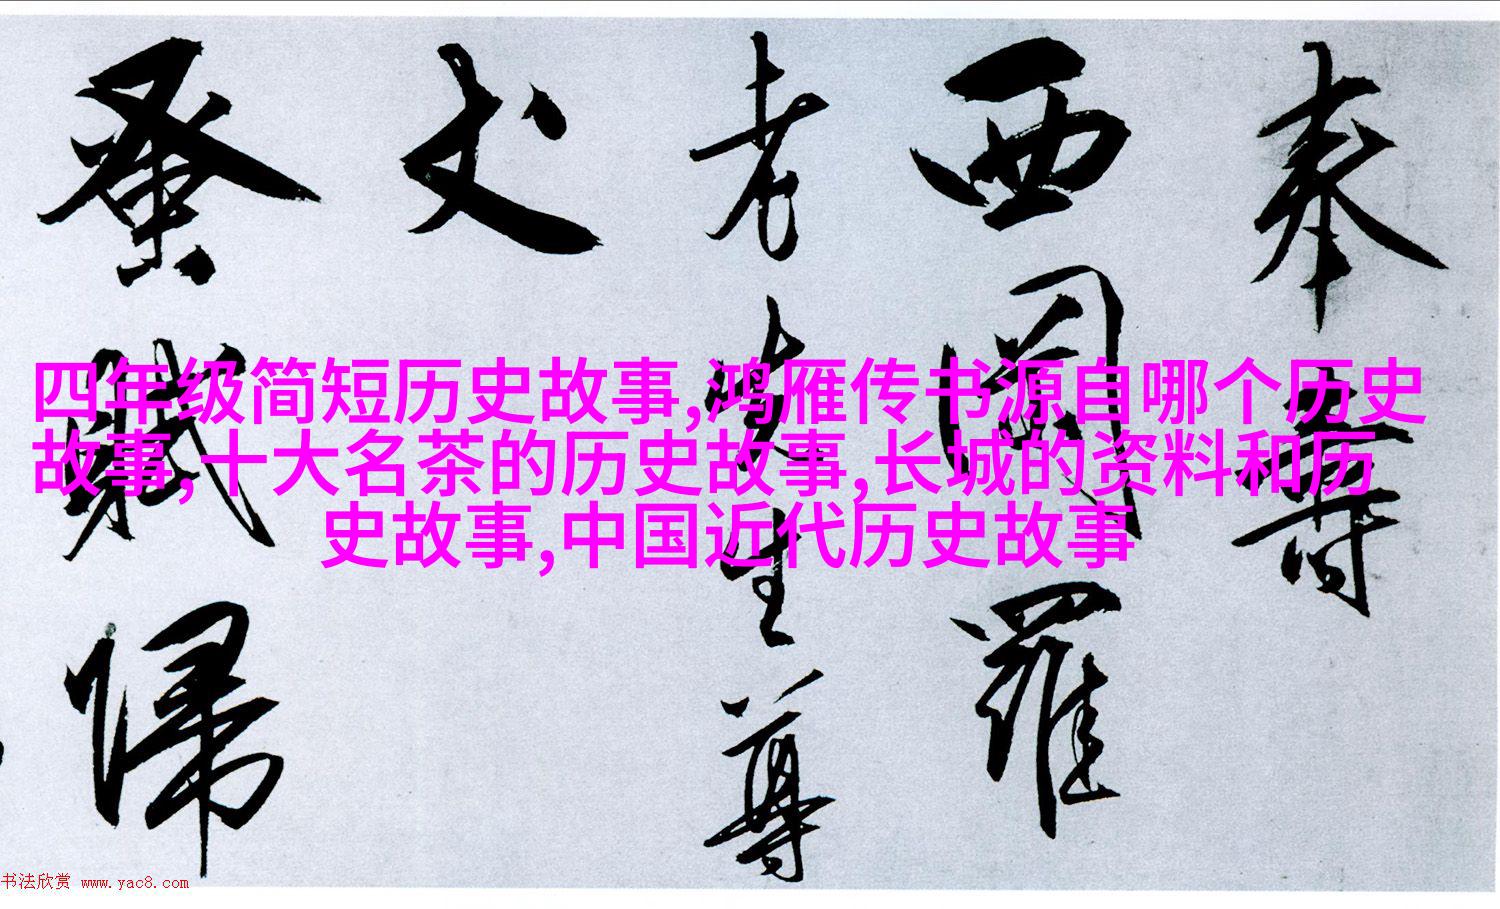 奉壽
西圃羅
老先生尊
丈
蚤賦歸
四年级简短历史故事,鸿雁传书源自哪个历史
故事,十大名茶的历史故事,长城的资料和历
史故事,中国近代历史故事
书法欣赏 www.yac8.com